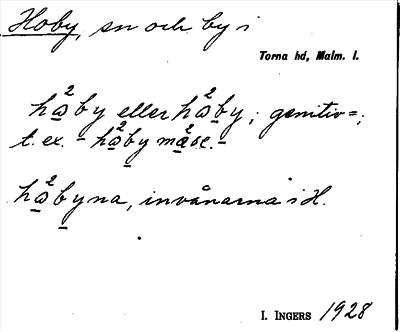 Hoby, sn och by i
Torna hd, Malm. l.
hå²by eller hå²by, genitiv =;
t. ex. - hå²by
hå²byna, invånarna i H.
I. INGERS 1928